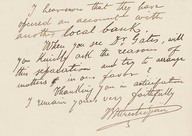 I hear now that they have
opened an account with
another local bank.
When you see Dr Gates, will
you kindly ask the reasons of
this separation and try to arrange
matters in our favor
Thanking you in anticipation
I remain yours very faithfully